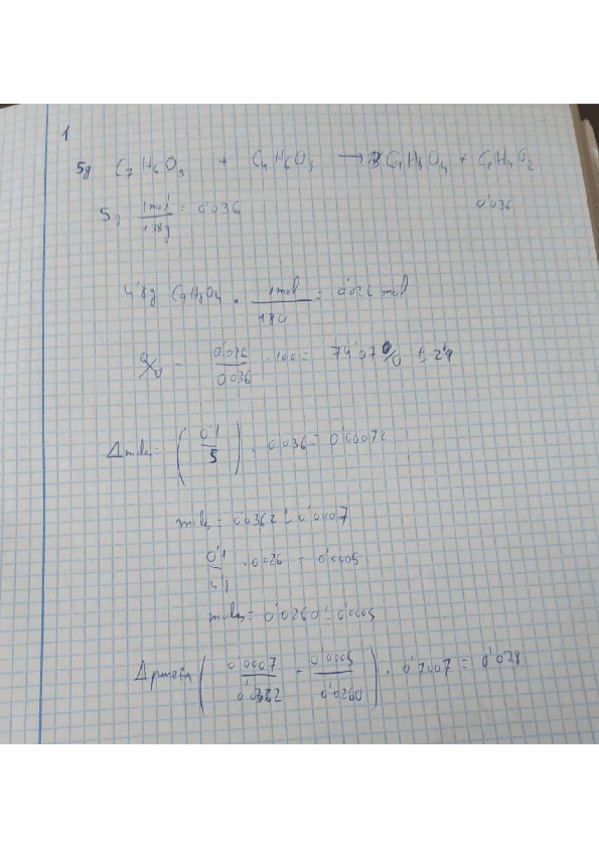 1
5g C7H6O3 + C4H6O3 → C9H8O4 + C2H4O2
5g 1mol/138g = 0'036 0'036
4'8g C9H8O4 · 1mol/180 = 0'026 mol
0'026/0'036 · 100 = 74'07%
Δmoles = (0'1/5) · 0'036 = 0'00072
moles = 0'0362 ± 0'0007
0'1/4'8 · 0'026 = 0'0005
moles = 0'0260 ± 0'0005
Δpureza (0'0007/0'0362 + 0'0005/0'0260) · 0'7407 = 0'028